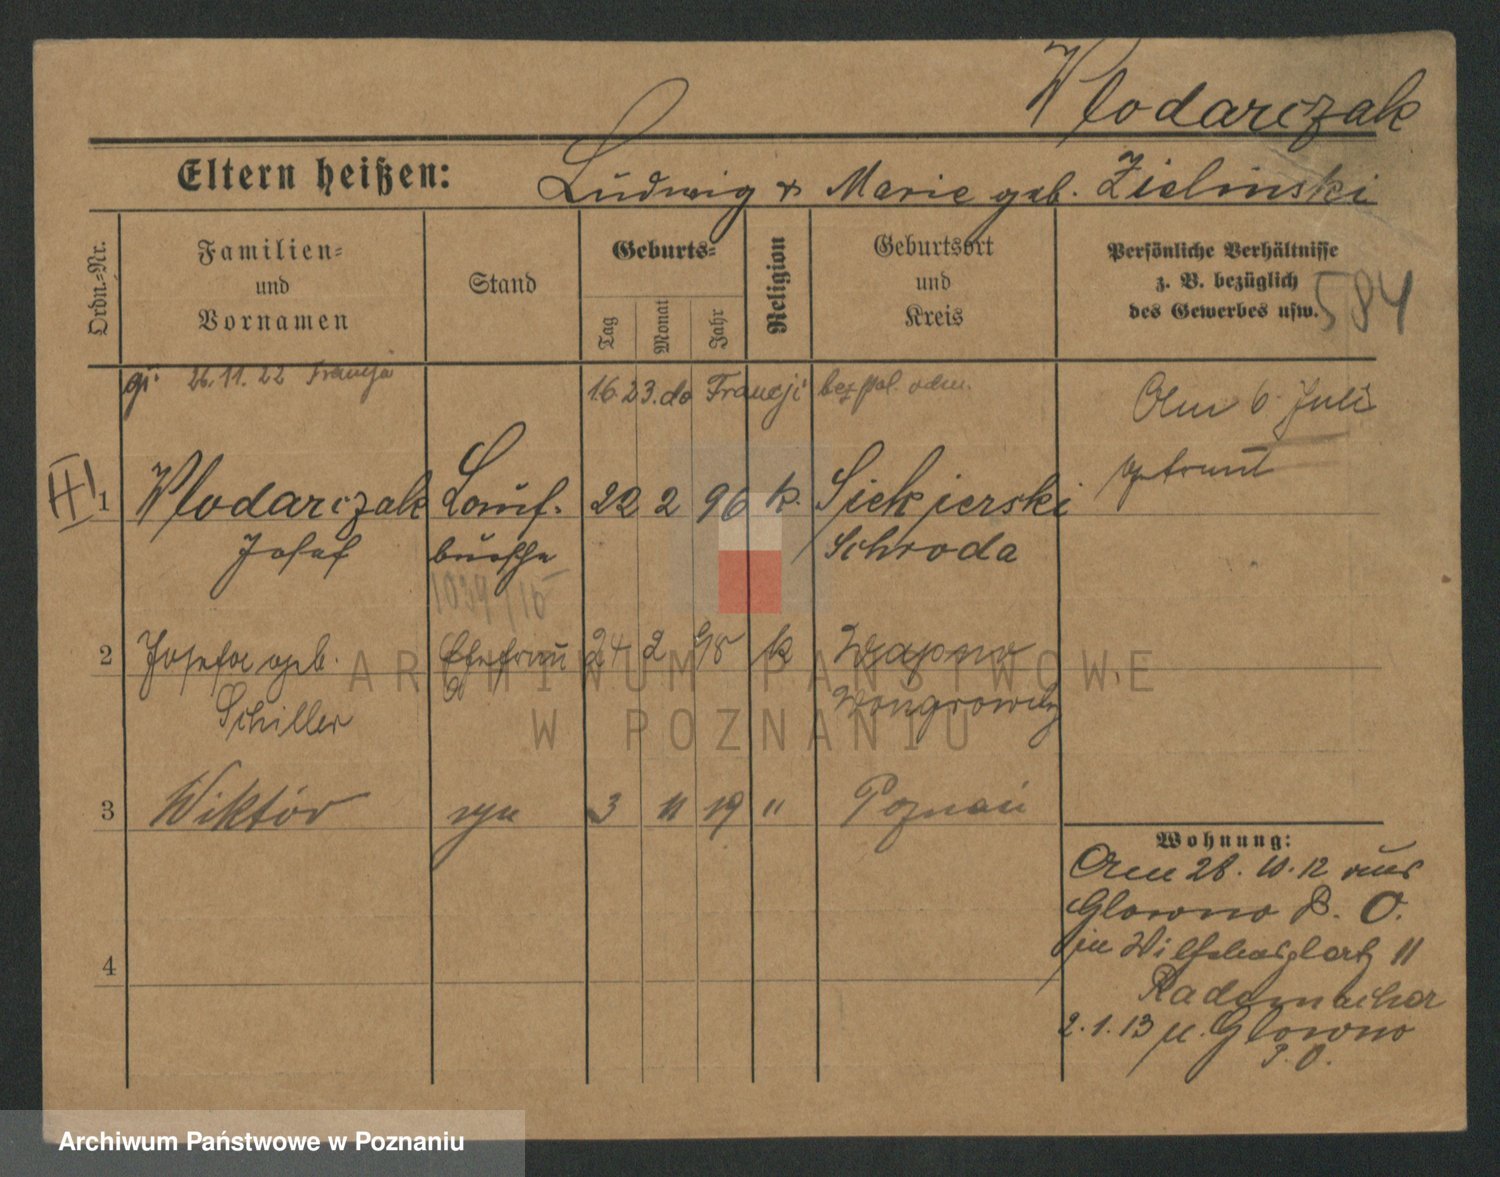 Wlodarczak
Eltern heißen: Ludwig & Marie geb. Zielinski
Ordn.=Nr.
Familien=
und
Vornamen
Stand
Geburts=
Tag
Monat
Jahr
Religion
Geburtsort
und
Kreis
Persönliche Verhältnisse
z. B. bezüglich
des Gewerbes usw.
584
26.11.22 Francja
16.23. do Francji bez pol. odm.
Am 6. Juli
getraut
III
1 Wlodarczak Lauf= 22 2 96 k. Siekierski
Josef bursche Schroda
1039/15
2 Josefa geb. Ehefrau 24 2 98 k Wapno
Schiller Wongrowitz
3 Wiktór syn 3 11 19 " Poznań
4
Wohnung:
Am 28. 10. 12 aus
Glowno P. O.
Wilhelmsplatz 11
Rademacher
2.1.13 n. Glowno
P. O.
ARCHIWUM PAŃSTWOWE
W POZNANIU
Archiwum Państwowe w Poznaniu